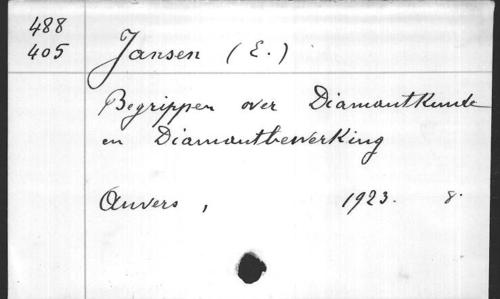 488
405
Jansen (E.)
Begrippen over Diamantkunde
en Diamantbewerking
Anvers, 1923. 8.